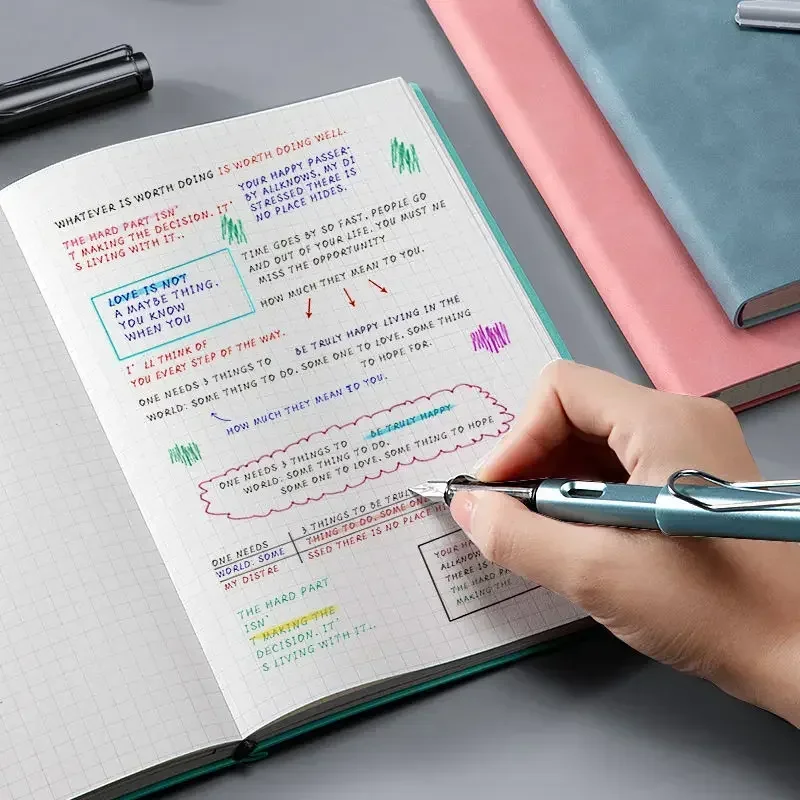 WHATEVER IS WORTH DOING IS WORTH DOING WELL.
THE HARD PART ISN'
T MAKING THE DECISION. IT'
S LIVING WITH IT..
YOUR HAPPY PASSER-
BY ALLKNOWS, MY DI
STRESSED THERE IS
NO PLACE HIDES.
TIME GOES BY SO FAST, PEOPLE GO
AND OUT OF YOUR LIFE. YOU MUST NE
MISS THE OPPORTUNITY
HOW MUCH THEY MEAN TO YOU.
LOVE IS NOT
A MAYBE THING.
YOU KNOW
WHEN YOU
I' LL THINK OF
YOU EVERY STEP OF THE WAY.
BE TRULY HAPPY LIVING IN THE
ONE NEEDS 3 THINGS TO
WORLD: SOME THING TO DO. SOME ONE TO LOVE. SOME THING
TO HOPE FOR.
HOW MUCH THEY MEAN TO YOU.
ONE NEEDS 3 THINGS TO BE TRULY HAPPY
WORLD: SOME THING TO DO.
SOME ONE TO LOVE. SOME THING TO HOPE
ONE NEEDS 3 THINGS TO BE TRULY
WORLD: SOME THING TO DO. SOME ONE
MY DISTRE SSED THERE IS NO PLACE HI
YOUR HA
ALLKNOW
THERE IS
THE HARD PA
MAKING THE
THE HARD PART
ISN'
T MAKING THE
DECISION. IT'
S LIVING WITH IT..